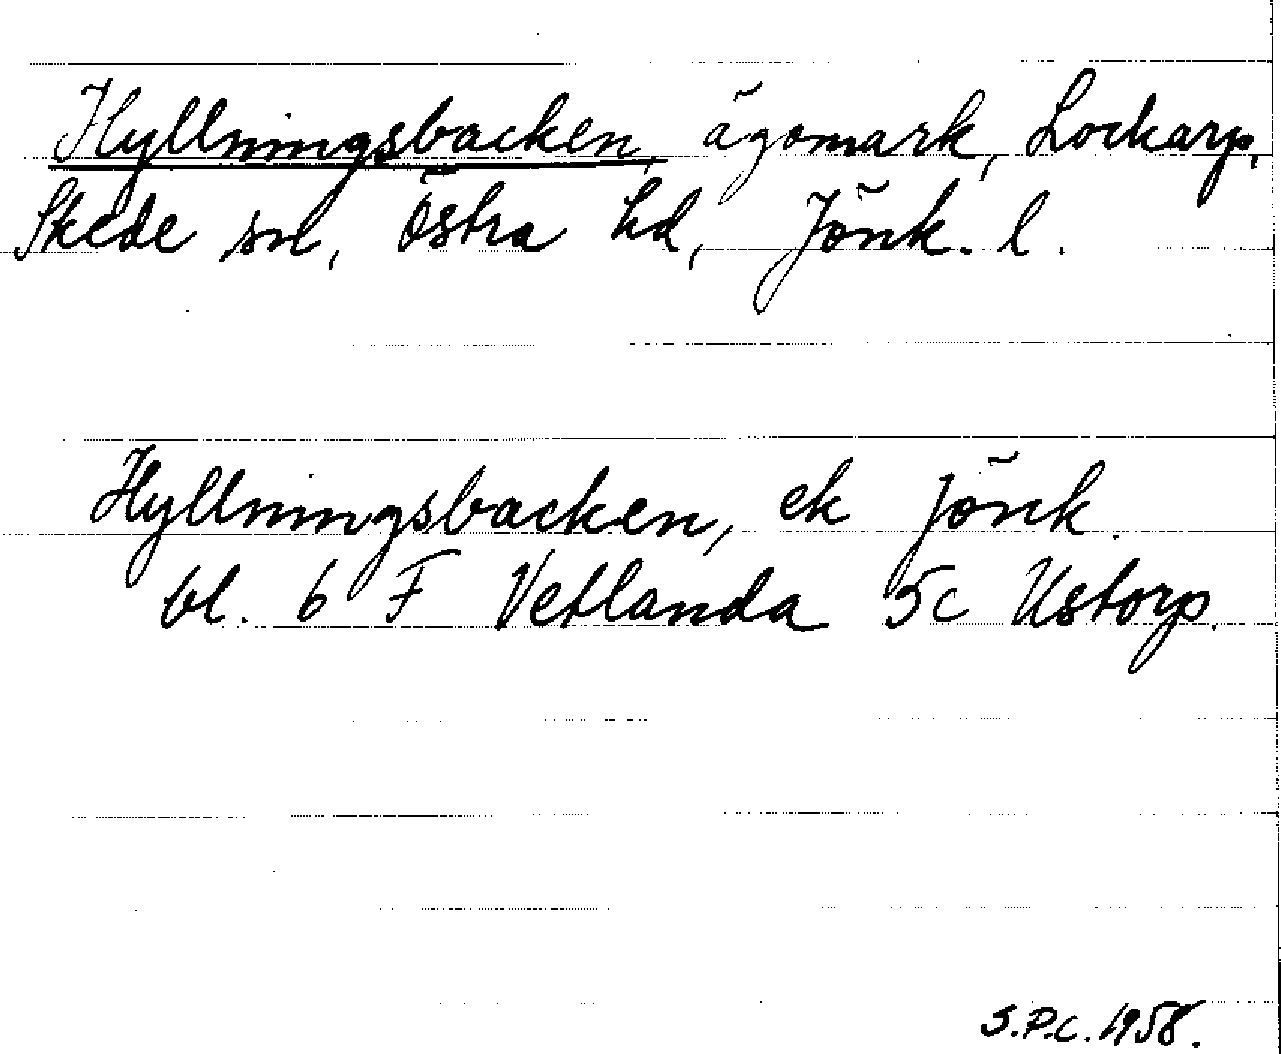 Hyllningsbacken, ägomark, Lockarp,
Skede sn, Östra hd, Jönk. l.
Hyllningsbacken, ek Jönk.
bl. 6 F Vetlanda 5c Ustorp.
S.P.C. 1958.